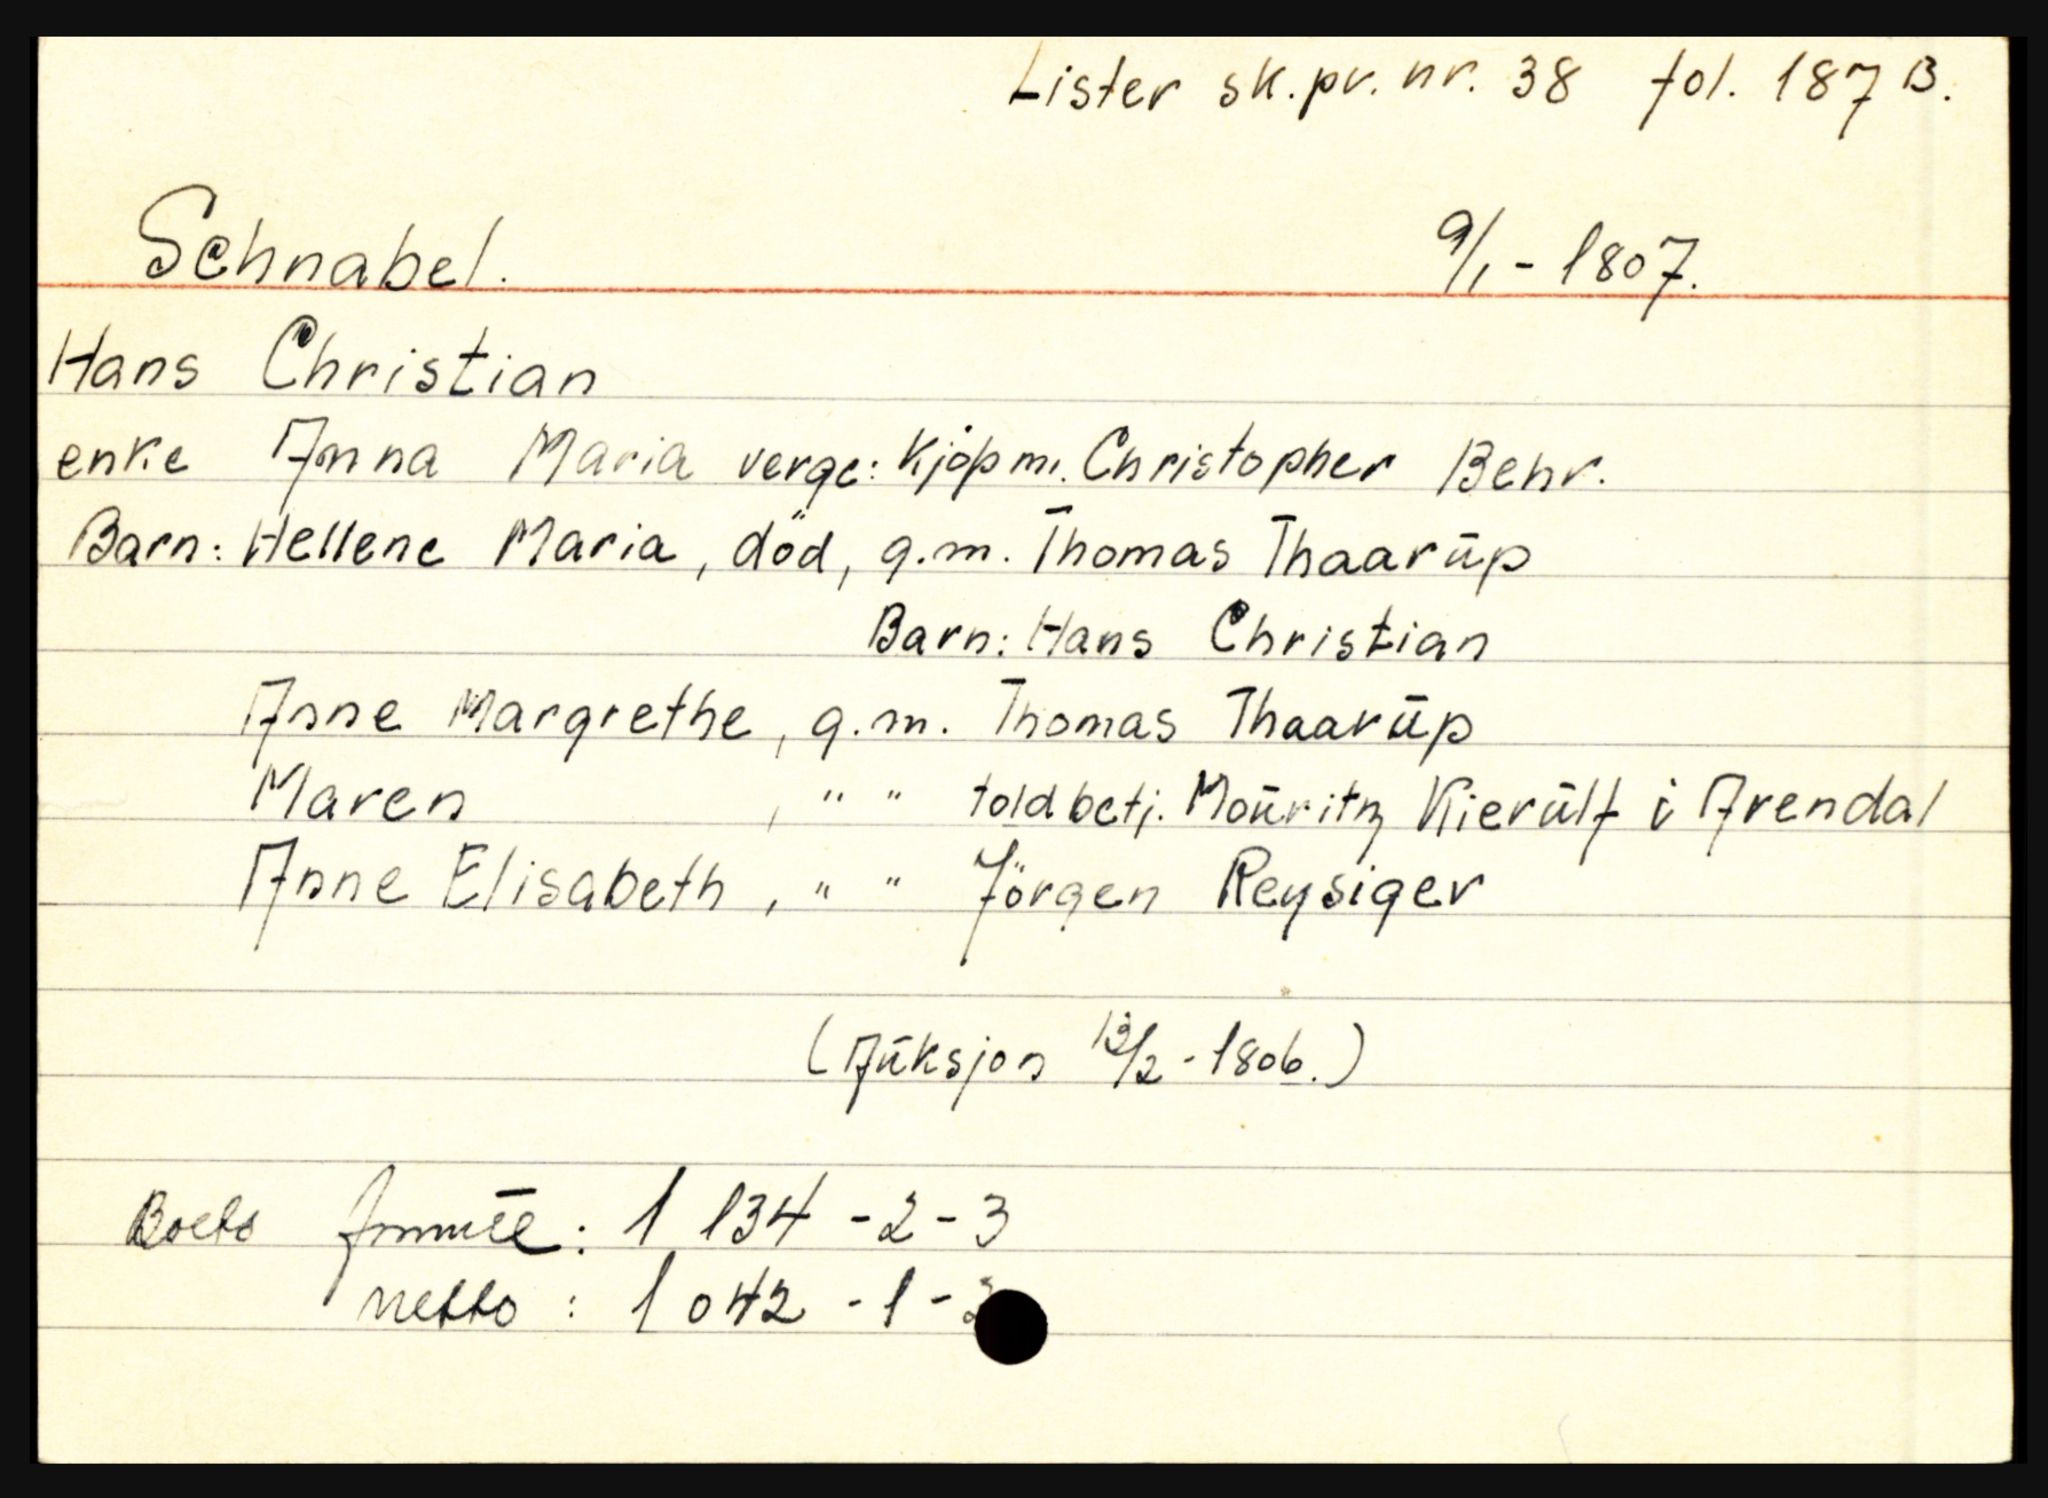 Lister sk.pr. nr. 38 fol. 187 B.
Schnabel. 9/1 - 1807.
Hans Christian
enke Anna Maria verge: Kjøpm. Christopher Behr.
Barn: Hellene Maria, död, g.m. Thomas Thaarūp
Barn: Hans Christian
Anne Margrethe, g.m. Thomas Thaarūp
Maren , " " toldbetj. Moūritz Kierūlf i Arendal
Anne Elisabeth, " " Jörgen Reysiger
(Aūksjon 13/2 - 1806.)
Boets : 1 134 - 2 - 3
netto : 1 042 - 1 -